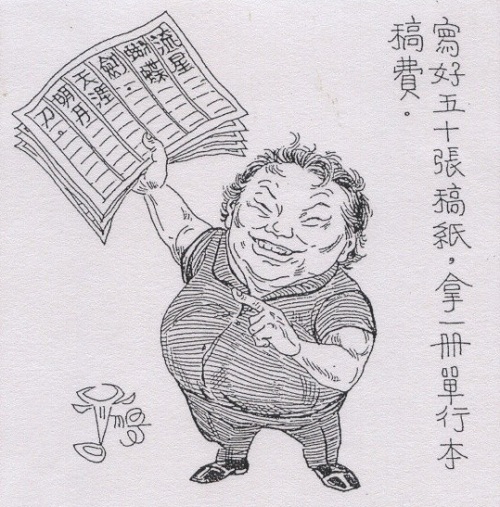 寫好五十張稿紙，拿一冊單行本
稿費。
流星
蝴蝶
劍．
天涯
明月
刀．